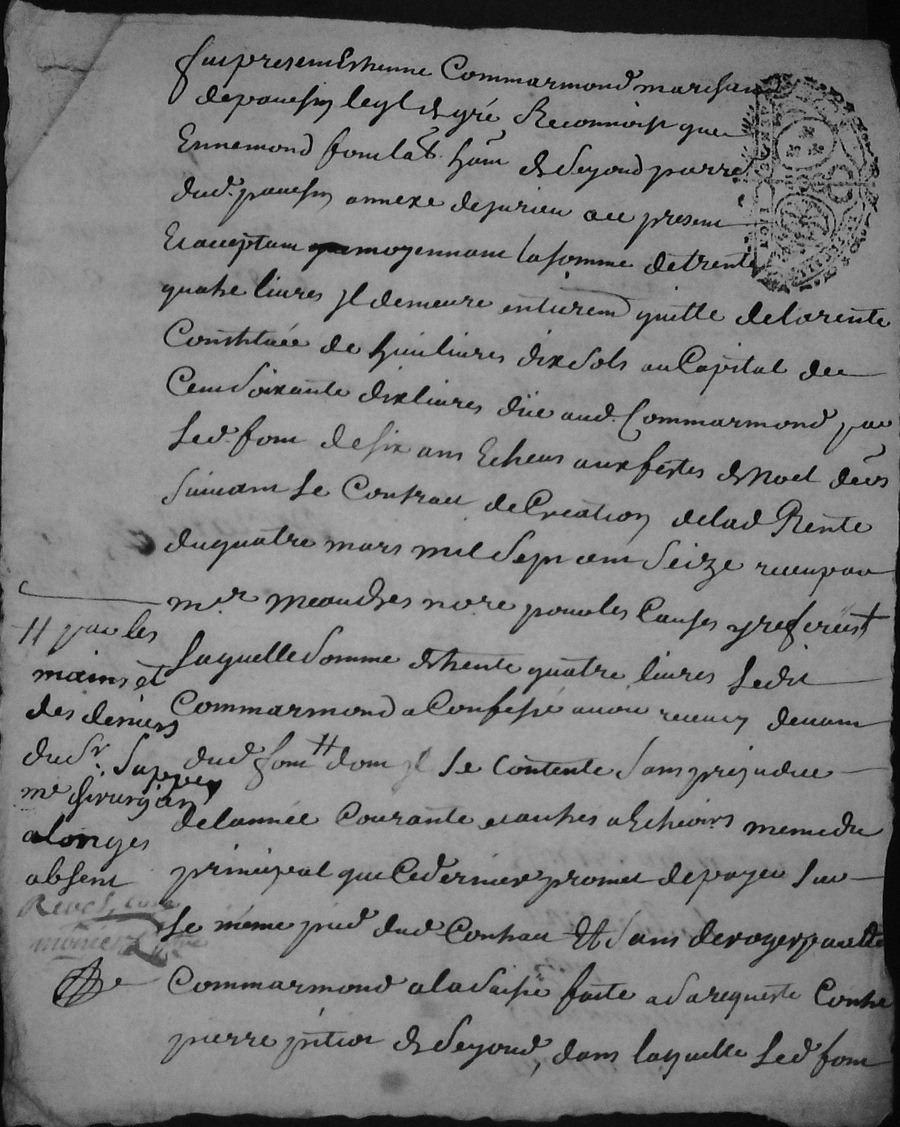 fut present Estienne Commarmond marchand
de pouessin lequel de gré Reconnoist que
Ennemond fom lab. hãn de Seyond pierre
dud. pouessin annexe de jurieu ace present
Et acceptant moyennant la somme de trente
quatre livres jl demeure entierem̃ quitte de la rente
Constituée de huit livres dix sols au Capital de
Cent soixante dix livres düe aud. Commarmond par
Led. fom de six ans Echeus aux festes de Noel
suivant Le Contrat de Creation de lad Rente
du quatre mars mil sept cent seize receu par
mr. meaudres nore pour les Causes y referées
Laquelle Somme de trente quatre livres Ledit
Commarmond a Confessé avoir receu devant
dud fom ++ dont jl Se Contente Sans prejudice
de l'année Courante et autres a Echeoirs meme du
principal que Ce dernier promet de payer Sur
Le même pied dud Contrat Et Sans deroger par led
Commarmond a la Saisie faite a Sa requeste Contre
pierre de Seyond, dans laquelle Led fom
++ par les
mains et
des deniers
du Sr.
me chirurgien
a longes
absent